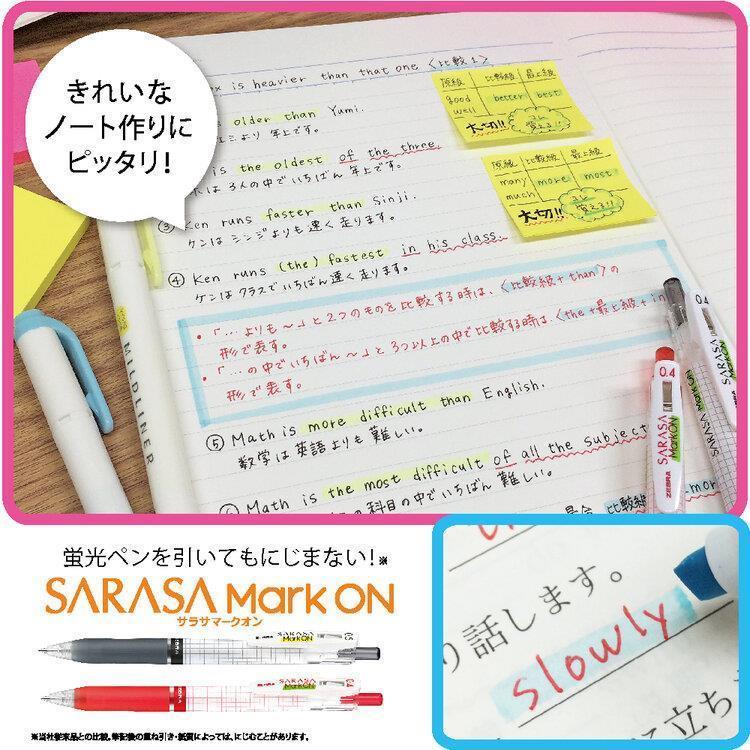 きれいな
ノート作りに
ピッタリ!
x is heavier than that one 〈比較1〉
older than Yumi.
より 年上です。
is the oldest of the three.
は 3人の中でいちばん 年上です。
③ Ken runs faster than Sinji.
ケンは シンジよりも 速く 走ります。
④ Ken runs (the) fastest in his class.
ケンは クラスでいちばん 速く 走ります。
原級 比較級 最上級
good better best
well
大切!!
覚える!!
原級 比較級 最上級
many more most
much
大切!!
覚える!!
・「…よりも~」と2つのものを比較する時は、〈比較級+than〉の
形で表す。
・「…の中でいちばん~」と3つ以上の中で比較する時は、〈the+最上級+in
形で表す。
⑤ Math is more difficult than English.
数学は 英語よりも 難しい。
Math is the most difficult of all the subject
の科目の中でいちばん 難しい。
比較級
more
MILDLINER
0.4
SARASA
Mark ON
ZEBRA
0.4
SARASA
Mark ON
蛍光ペンを引いてもにじまない!※
SARASA Mark ON
サラサマークオン
SARASA
Mark ON
0.5
SARASA
Mark ON
0.4
※当社従来品との比較。筆記後の重ね引き・紙質によっては、にじむことがあります。
り話します。
slowly
に立ち